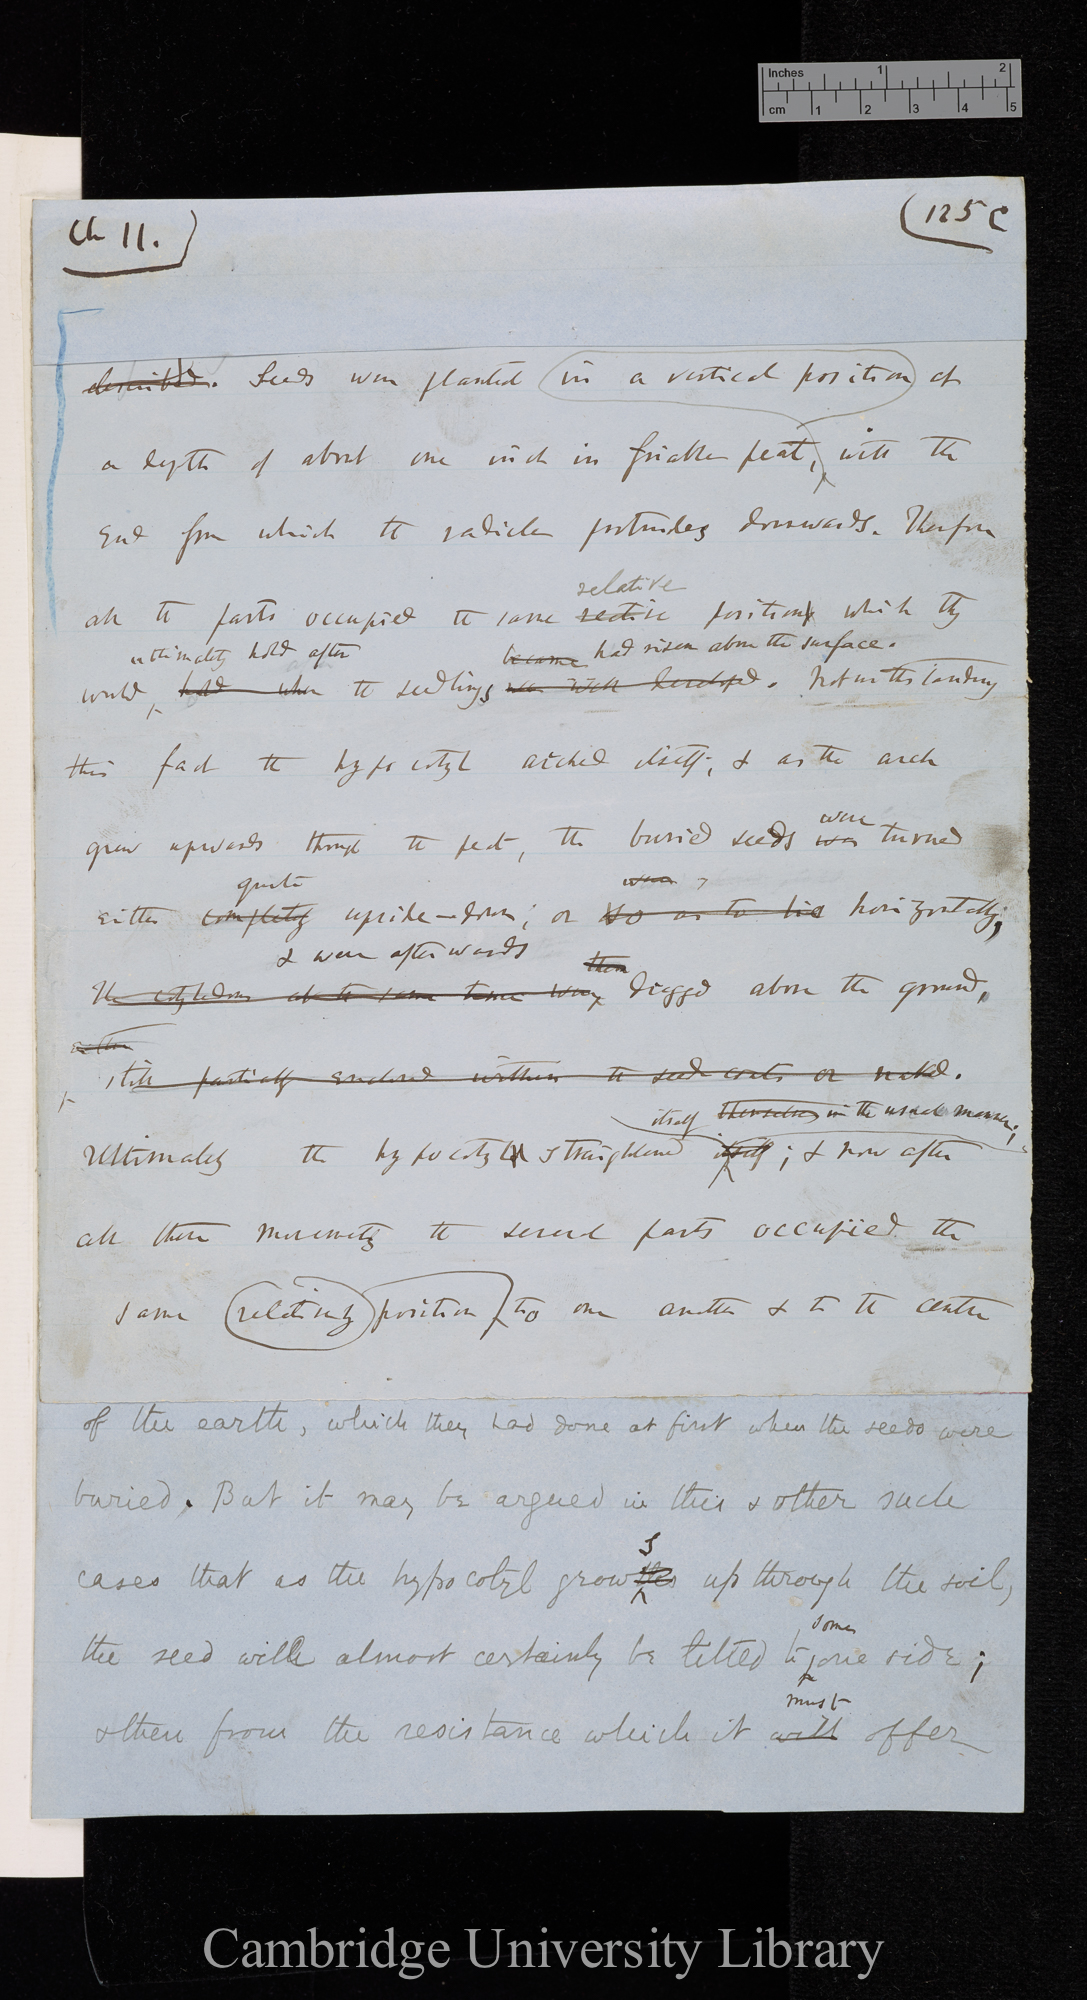 Inches 1 2
cm 1 2 3 4 5
Ch 11.
(125 C
described. Seeds were planted in a vertical position at
a depth of about one inch in friable peat, with the
end from which the radicle protrudes downwards. Therefore
relative
all the parts occupied the same position which they
ultimately hold after became had risen above the surface.
would hold when the seedlings were well developed. Notwithstanding
this fact the hypocotyl arched itself, & as the arch
were
grew upwards through the peat, the buried seeds was turned
quite were
either completely upside-down, or so as to lie horizontally,
& were afterwards then
the cotyledons at the same time being dragged above the ground,
either
still partially enclosed within the seed-coats or naked.
itself themselves in the usual manner;
Ultimately the hypocotyl straightened itself; & now after
all these movements the several parts occupied the
same relatively position to one another & to the centre
of the earth, which they had done at first when the seeds were
buried. But it may be argued in this & other such
s
cases that as the hypocotyl grow up through the soil,
some
the seed will almost certainly be tilted to one side;
must
& then from the resistance which it will offer
Cambridge University Library